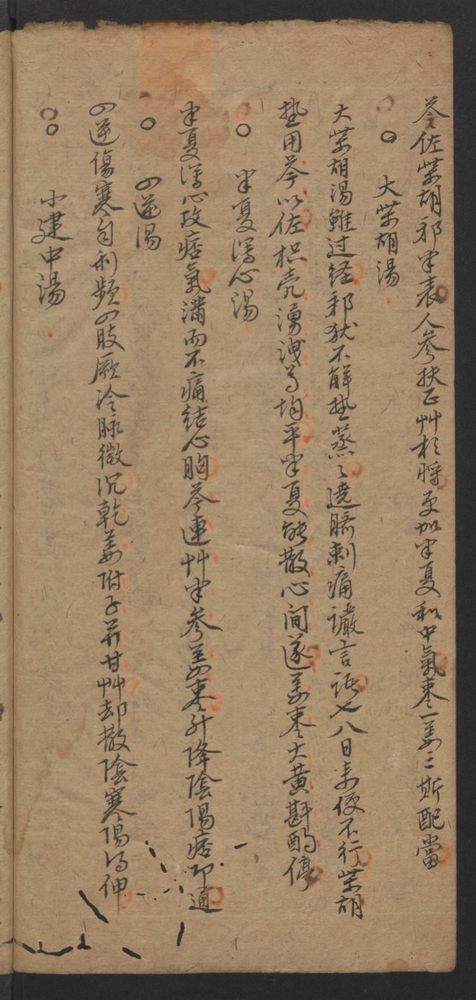 芩佐柴胡邪半表人參扶正艸相將更加半夏和中氣棗二姜三斯配當
○○ 大柴胡湯
大柴胡湯雖过经邪犹不解热蒸〻遶臍刺痛讝言語七八日来便不行柴胡
热用芩以佐枳壳湧洩芍均平半夏能散心间逆姜枣大黄斟酌停
○ 半夏瀉心湯
半夏瀉心攻痞氣滿而不痛结心胸芩連艸半參姜枣升降陰陽痞即通
○ 四逆湯
四逆傷寒自利频四肢厥冷脉微沉乾姜附子并甘艸却散陰寒陽得伸
○○ 小建中湯